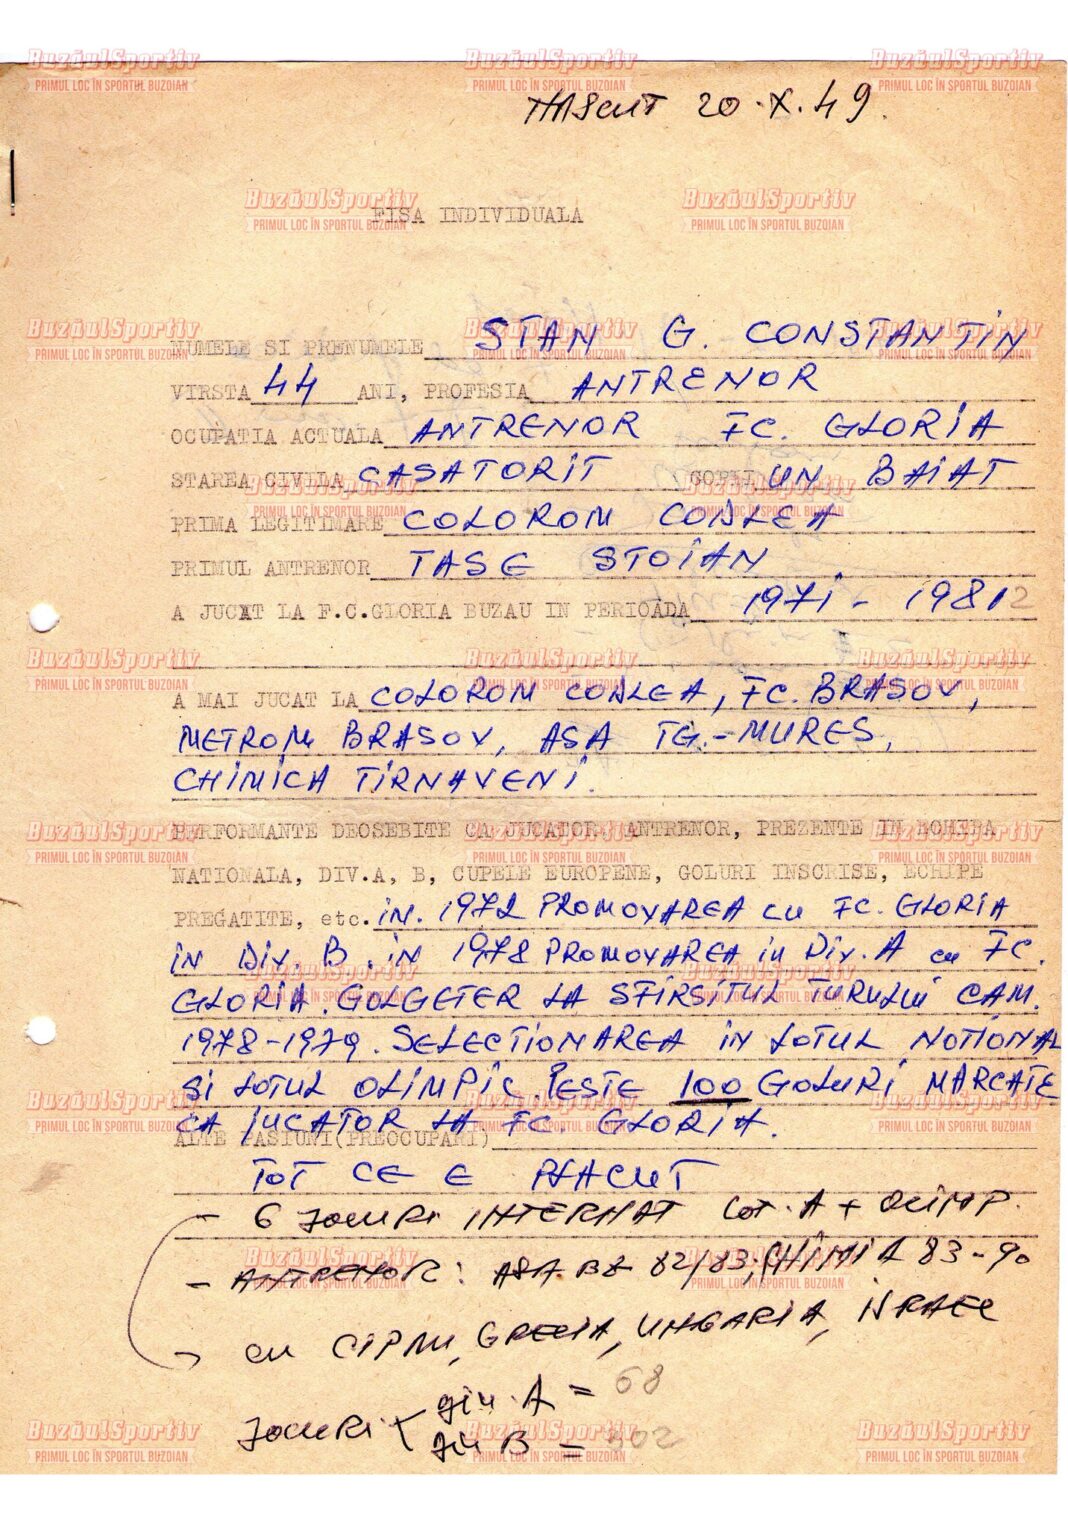 NASCUT 20.X.49.
FISA INDIVIDUALA
NUMELE SI PRENUMELE STAN G. CONSTANTIN
VIRSTA 44 ANI, PROFESIA ANTRENOR
OCUPATIA ACTUALA ANTRENOR FC. GLORIA
STAREA CIVILA CASATORIT COPII UN BAIAT
PRIMA LEGITIMARE COLOROM CODLEA
PRIMUL ANTRENOR TASE STOIAN
A JUCAT LA F.C.GLORIA BUZAU IN PERIOADA 1971 - 1982
A MAI JUCAT LA COLOROM CODLEA, FC. BRASOV,
METROM BRASOV, ASA TG.-MURES,
CHIMICA TIRNAVENI.
PERFORMANTE DEOSEBITE CA JUCATOR, ANTRENOR, PREZENTE IN ECHIPA
NATIONALA, DIV.A, B, CUPELE EUROPENE, GOLURI INSCRISE, ECHIPE
PREGATITE, etc. IN. 1972 PROMOVAREA cu FC. GLORIA
IN Div. B. IN 1978 PROMOVAREA in Div. A cu FC.
GLORIA. GOLGETER LA SFIRSITUL TURULUI CAM.
1978-1979. SELECTIONAREA IN LOTUL NOTIONAL
SI LOTUL OLIMPIC. PESTE 100 GOLURI MARCATE
CA JUCATOR LA FC. GLORIA.
ALTE PASIUNI(PREOCUPARI)
TOT CE E PLACUT
- 6 JOCURI INTERNAT Lot. A + OLIMP.
- ANTRENOR: ASA BZ 82/83; CHIMIA 83-90
cu CIPRU, GRECIA, UNGARIA, ISRAEL
JOCURI div. A = 68
div B = 302
BuzăulSportiv
PRIMUL LOC ÎN SPORTUL BUZOIAN